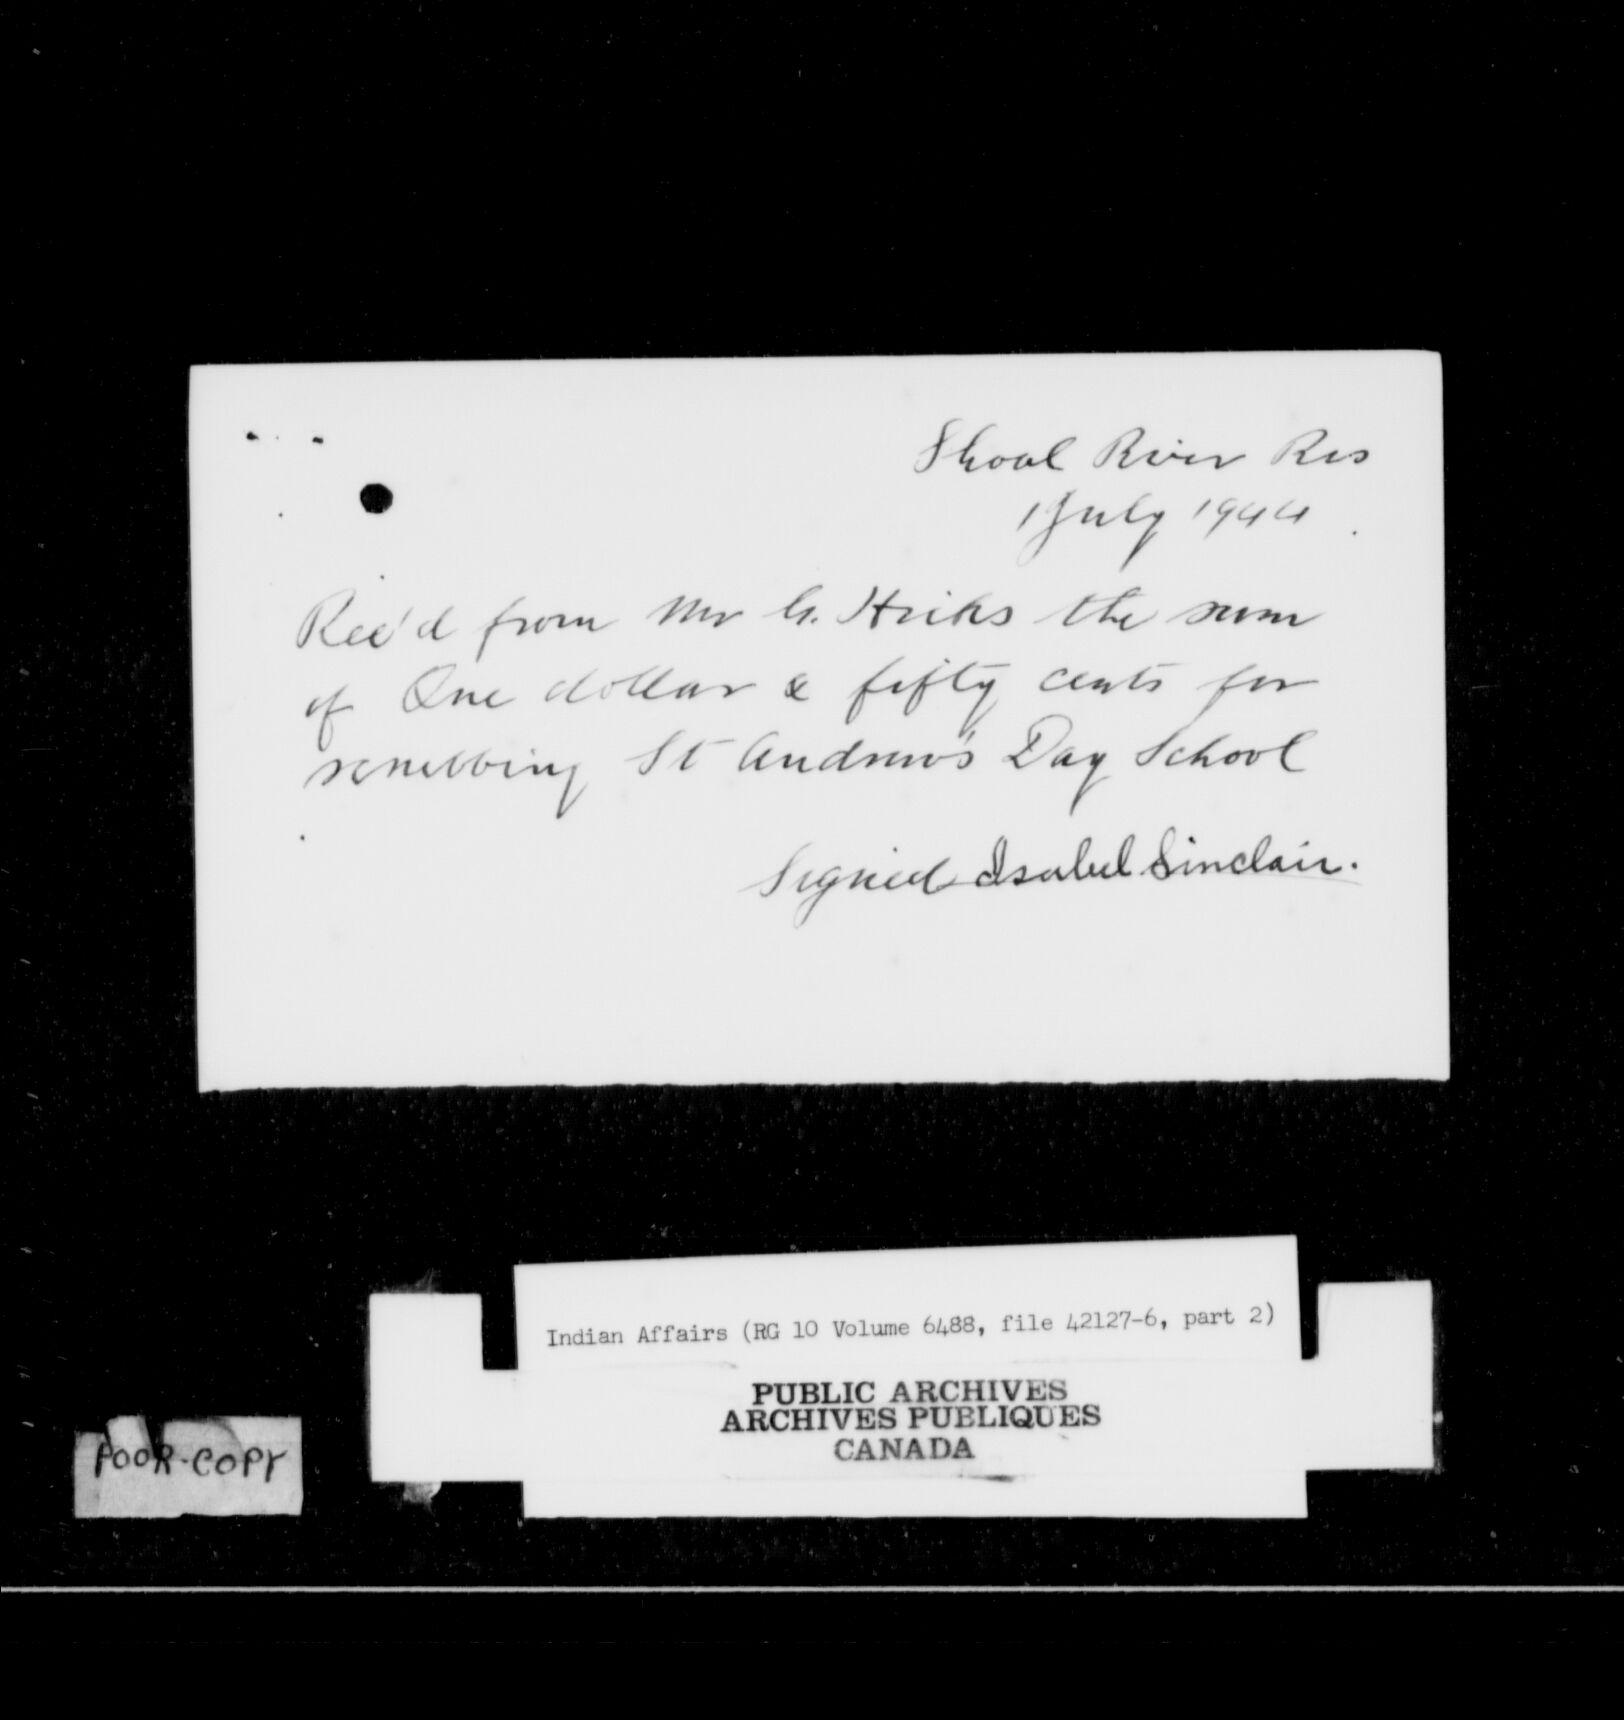 Shoal River Res
1 July 1944
Rec'd from Mr G. Hicks the sum
of One dollar & fifty cents for
scrubbing St Andrew's Day School
Signed Isabel Sinclair.
Indian Affairs (RG 10 Volume 6488, file 42127-6, part 2)
PUBLIC ARCHIVES
ARCHIVES PUBLIQUES
CANADA
POOR-COPY